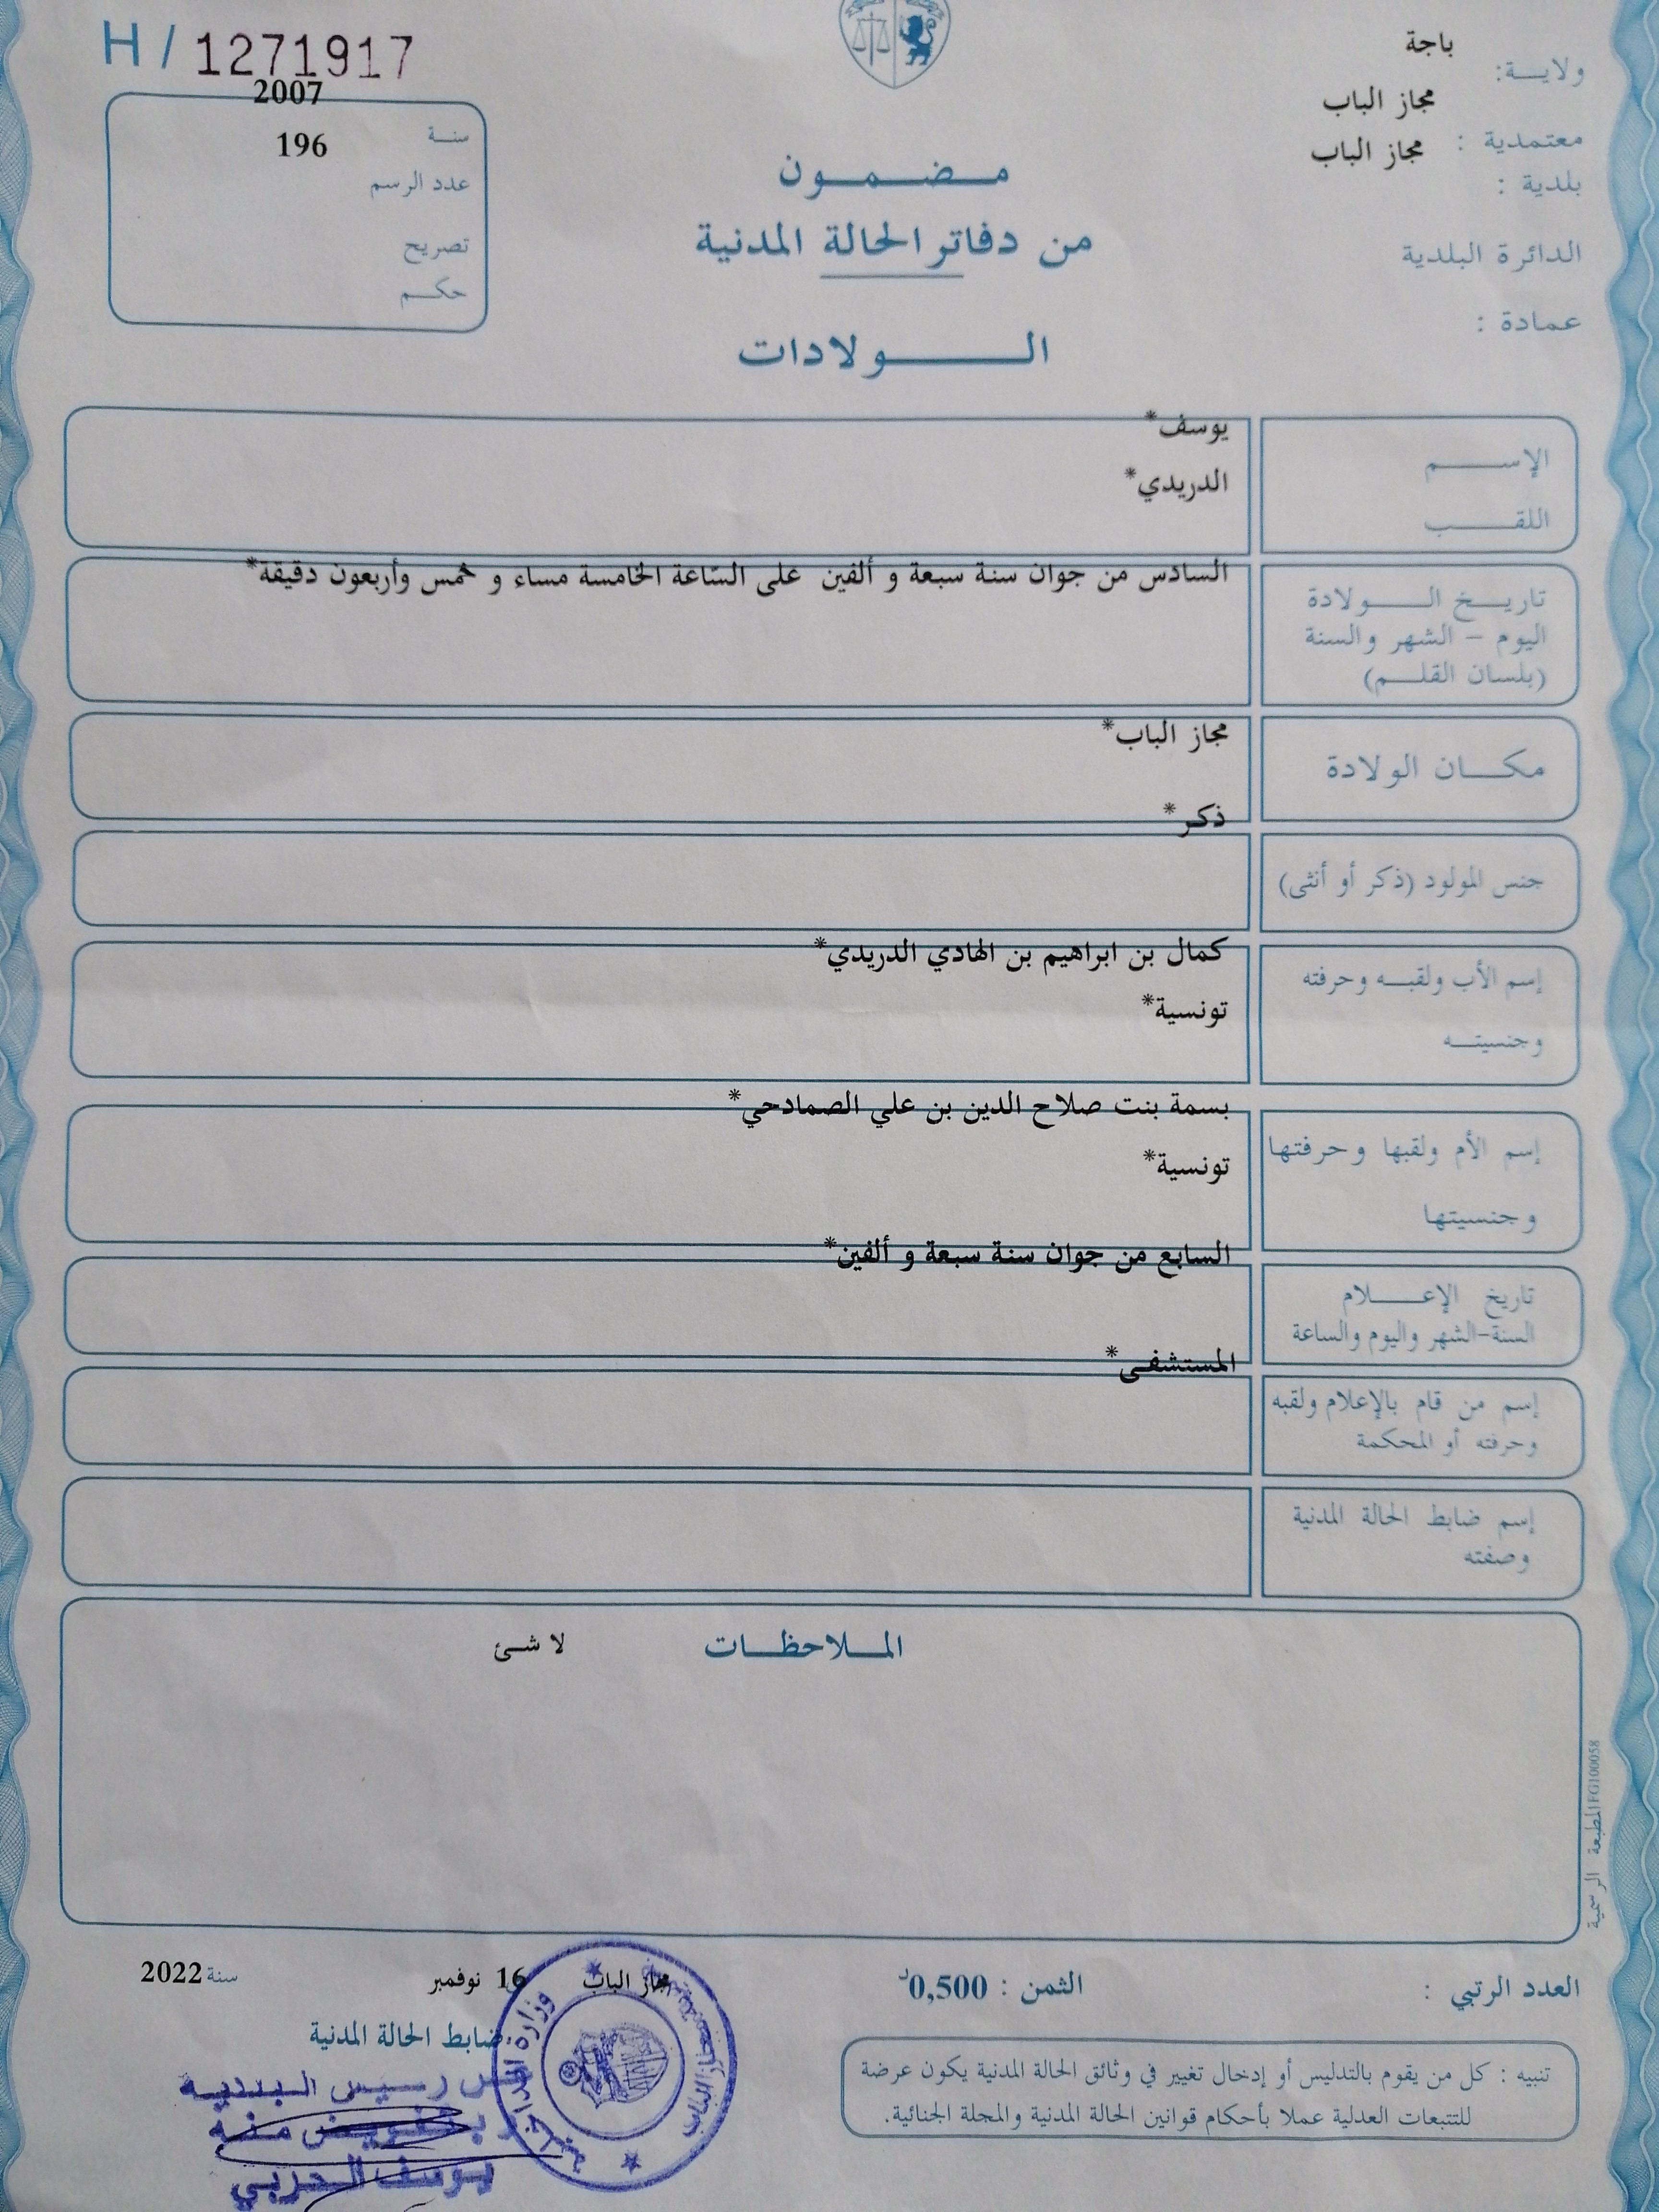 H / 1271917
باجة
ولايـــة:
مجاز الباب
معتمدية :
مجاز الباب
بلدية :
الدائرة البلدية
عمادة :
2007
سنة
196
عدد الرسم
تصريح
حكم
مضمون
من دفاتر الحالة المدنية
الولادات
الإسم
يوسف*
اللقب
الدريدي*
تاريخ الولادة
اليوم - الشهر والسنة
(بلسان القلم)
السادس من جوان سنة سبعة و ألفين على السّاعة الخامسة مساء و خمس وأربعون دقيقة*
مكان الولادة
مجاز الباب*
جنس المولود (ذكر أو أنثى)
ذكر*
إسم الأب ولقبه وحرفته
وجنسيته
كمال بن ابراهيم بن الهادي الدريدي*
تونسية*
إسم الأم ولقبها وحرفتها
وجنسيتها
بسمة بنت صلاح الدين بن علي الصمادحي*
تونسية*
تاريخ الإعلام
السنة-الشهر واليوم والساعة
السابع من جوان سنة سبعة و ألفين*
إسم من قام بالإعلام ولقبه
وحرفته أو المحكمة
المستشفى*
إسم ضابط الحالة المدنية
وصفته
الملاحظات
لا شئ
المطبعة الرسمية FG100058
العدد الرتبي :
الثمن : 0,500د
مجاز الباب 16 نوفمبر سنة 2022
ضابط الحالة المدنية
تنبيه : كل من يقوم بالتدليس أو إدخال تغيير في وثائق الحالة المدنية يكون عرضة
للتتبعات العدلية عملا بأحكام قوانين الحالة المدنية والمجلة الجنائية.
رئيس البلدية
بتفويض منه
يوسف الحربي
وزارة الداخلية